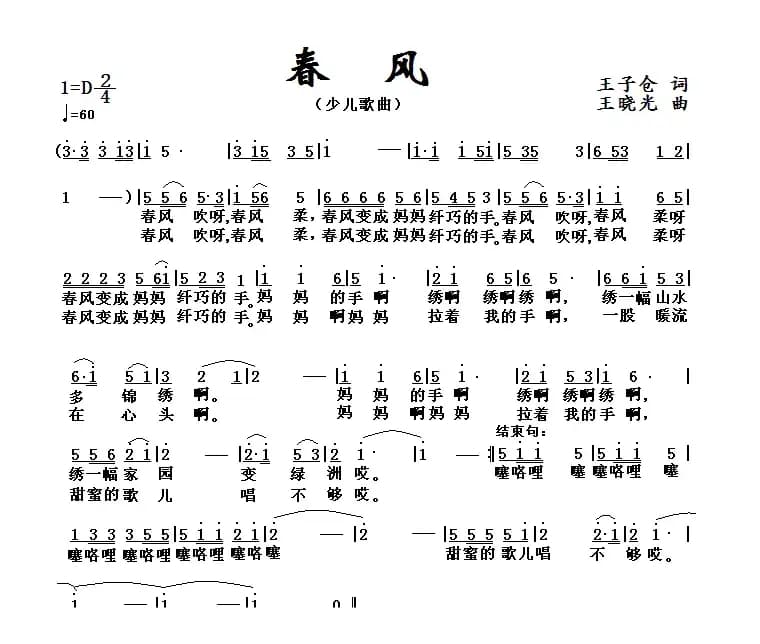 春 风
（少儿歌曲）
1=D 2/4
♩=60
王子仓 词
王晓光 曲
(3·3 3 13|1 5 · |3 15 3 5|1 —|1·1 1 51|5 35 3|6 53 1 2|
1 —)|5 5 6 5·3|1 56 5|6 6 6 6 5 6|5 4 5 3|5 5 6 5·3|1 1 6 5|
春风 吹呀,春风 柔,春风变成妈妈纤巧的手。春风 吹呀,春风 柔呀
春风 吹呀,春风 柔,春风变成妈妈纤巧的手。春风 吹呀,春风 柔呀
2 2 2 3 5 61|5 2 3 1|1 1 6|5 1 ·|2 1 6 5 3|5 2 ·|6 6 1 5 3|
春风变成妈妈 纤巧的手。妈 妈 的手啊 绣啊 绣啊绣啊, 绣一幅山水
春风变成妈妈 纤巧的手。妈 妈 啊妈妈 拉着 我的手啊, 一股 暖流
6·1 5 1|3 2 2 1|2 —|1 1 6|5 1 ·|2 1 5 3|1 6 ·|
多 锦 绣啊。 妈妈 的手啊 绣啊绣啊绣啊,
在 心 头啊。 妈妈 啊妈妈 拉着我的手啊,
结束句:
5 5 5 6 5 1|2 —|2·1 5 3|2 1 ·|1 —:‖5 1 1 5 1 1|5 1 1 5|
绣一幅家 园 变 绿 洲 哎。 噻咯哩 噻咯哩噻咯哩 噻
甜蜜的歌儿 唱 不 够哎。
1 3 3 3 5 5|5 1 1 5 1 1|2 —|2 —|5 5 5 5 1|2 —|2·1 5|
噻咯哩 噻咯哩噻咯哩 噻咯噻 甜蜜的 歌儿唱 不 够 哎。
1 —|1 —|1 0‖